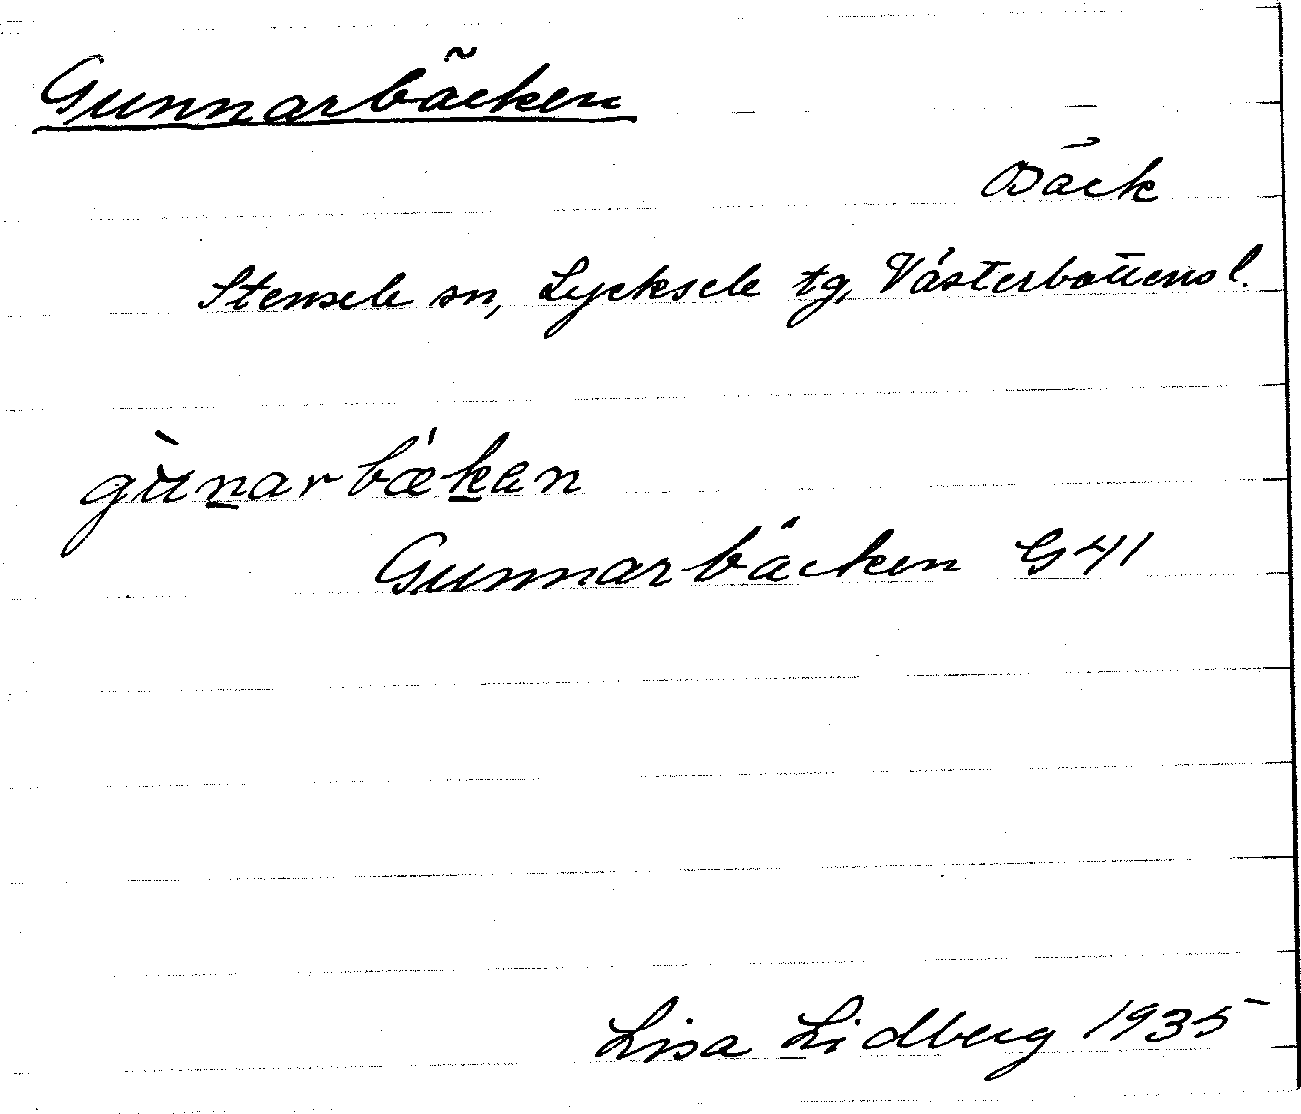 Gunnarbäcken
Bäck
Stensele sn, Lycksele tg, Västerbottens l.
gùn̲arbǽk̲en
Gunnarbäcken G41
Lisa Lidberg 1935